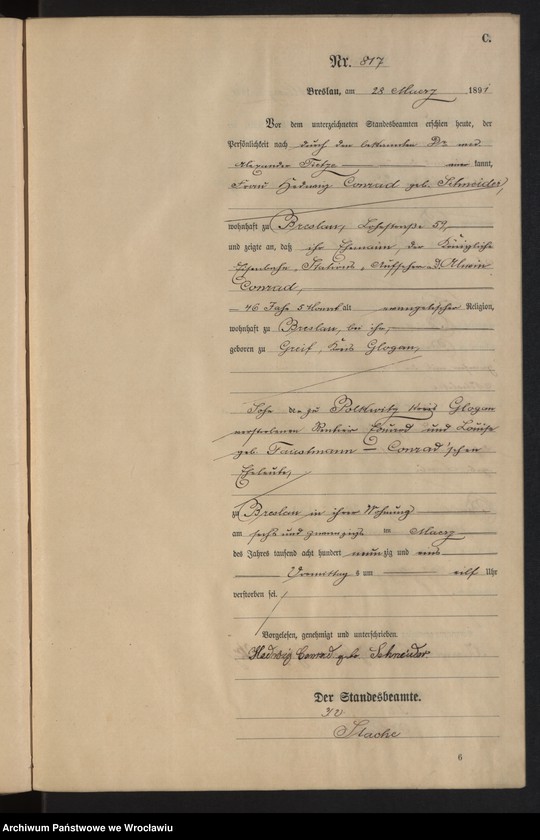 C.
Nr. 817
Breslau, am 28 Maerz 1891
Vor dem unterzeichneten Standesbeamten erschien heute, der
Persönlichkeit nach durch den bekannten Dr med.
Alexander Tietze kannt,
Frau Hedwig Conrad geb. Schneider,
wohnhaft zu Breslau, Lohestraße 52,
und zeigte an, daß ihr Ehemann, der Königliche
Eisenbahn Stations Aufseher Alwin
Conrad,
46 Jahr 5 Monat alt evangelischer Religion,
wohnhaft zu Breslau, bei ihr,
geboren zu Kreis Glogau,
Sohn der zu Polkwitz Kreis Glogau
verstorbenen Rentier Eduard und Louise
geb. Conrad'schen
Eheleute,
zu Breslau in ihrer Wohnung
am sechs und zwanzigsten Maerz
des Jahres tausend acht hundert neunzig und eins
Vormittags um elf Uhr
verstorben sei.
Vorgelesen, genehmigt und unterschrieben
Hedwig Conrad geb. Schneider
Der Standesbeamte.
6
Archiwum Państwowe we Wrocławiu